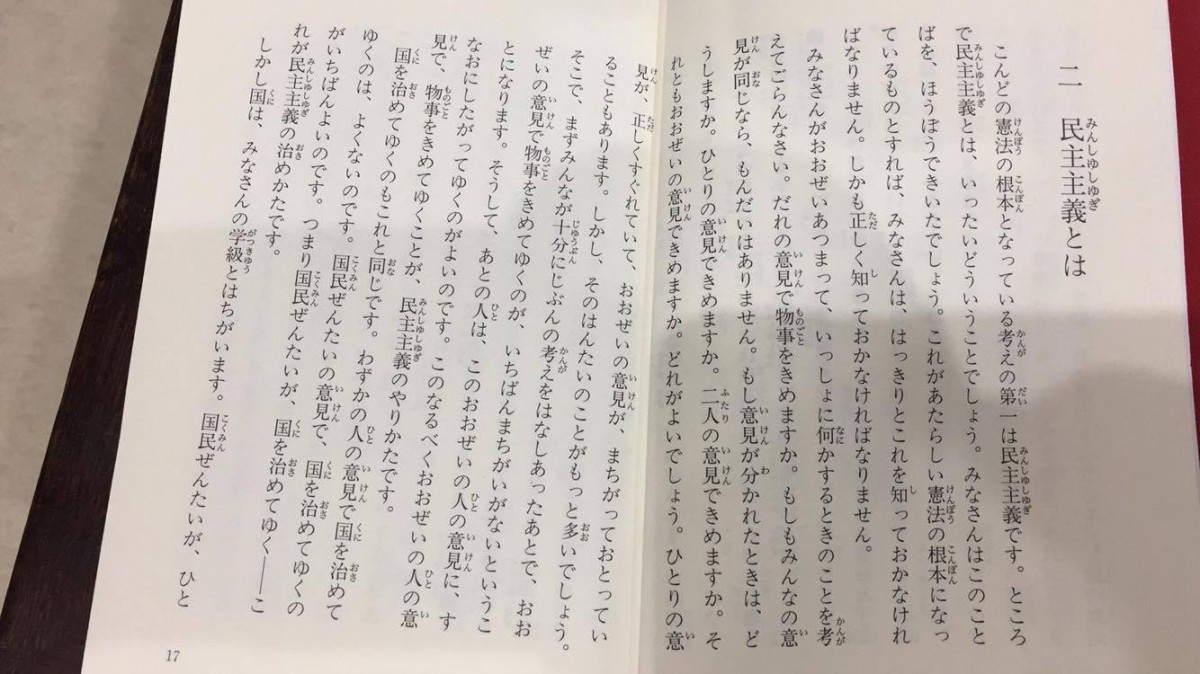 二　民主主義とは
こんどの憲法の根本となっている考えの第一は民主主義です。ところ
で民主主義とは、いったいどういうことでしょう。みなさんはこのこと
ばを、ほうぼうできいたでしょう。これがあたらしい憲法の根本になっ
ているものとすれば、みなさんは、はっきりとこれを知っておかなけれ
ばなりません。しかも正しく知っておかなければなりません。
みなさんがおおぜいあつまって、いっしょに何かするときのことを考
えてごらんなさい。だれの意見で物事をきめますか。もしもみんなの意
見が同じなら、もんだいはありません。もし意見が分かれたときは、ど
うしますか。ひとりの意見できめますか。二人の意見できめますか。そ
れともおおぜいの意見できめますか。どれがよいでしょう。ひとりの意
見が、正しくすぐれていて、おおぜいの意見が、まちがっておとってい
ることもあります。しかし、そのはんたいのことがもっと多いでしょう。
そこで、まずみんなが十分にじぶんの考えをはなしあったあとで、おお
ぜいの意見で物事をきめてゆくのが、いちばんまちがいがないというこ
とになります。そうして、あとの人は、このおおぜいの人の意見に、す
なおにしたがってゆくのがよいのです。このなるべくおおぜいの人の意
見で、物事をきめてゆくことが、民主主義のやりかたです。
国を治めてゆくのもこれと同じです。わずかの人の意見で国を治めて
ゆくのは、よくないのです。国民ぜんたいの意見で、国を治めてゆくの
がいちばんよいのです。つまり国民ぜんたいが、国を治めてゆく――こ
れが民主主義の治めかたです。
しかし国は、みなさんの学級とはちがいます。国民ぜんたいが、ひと
17